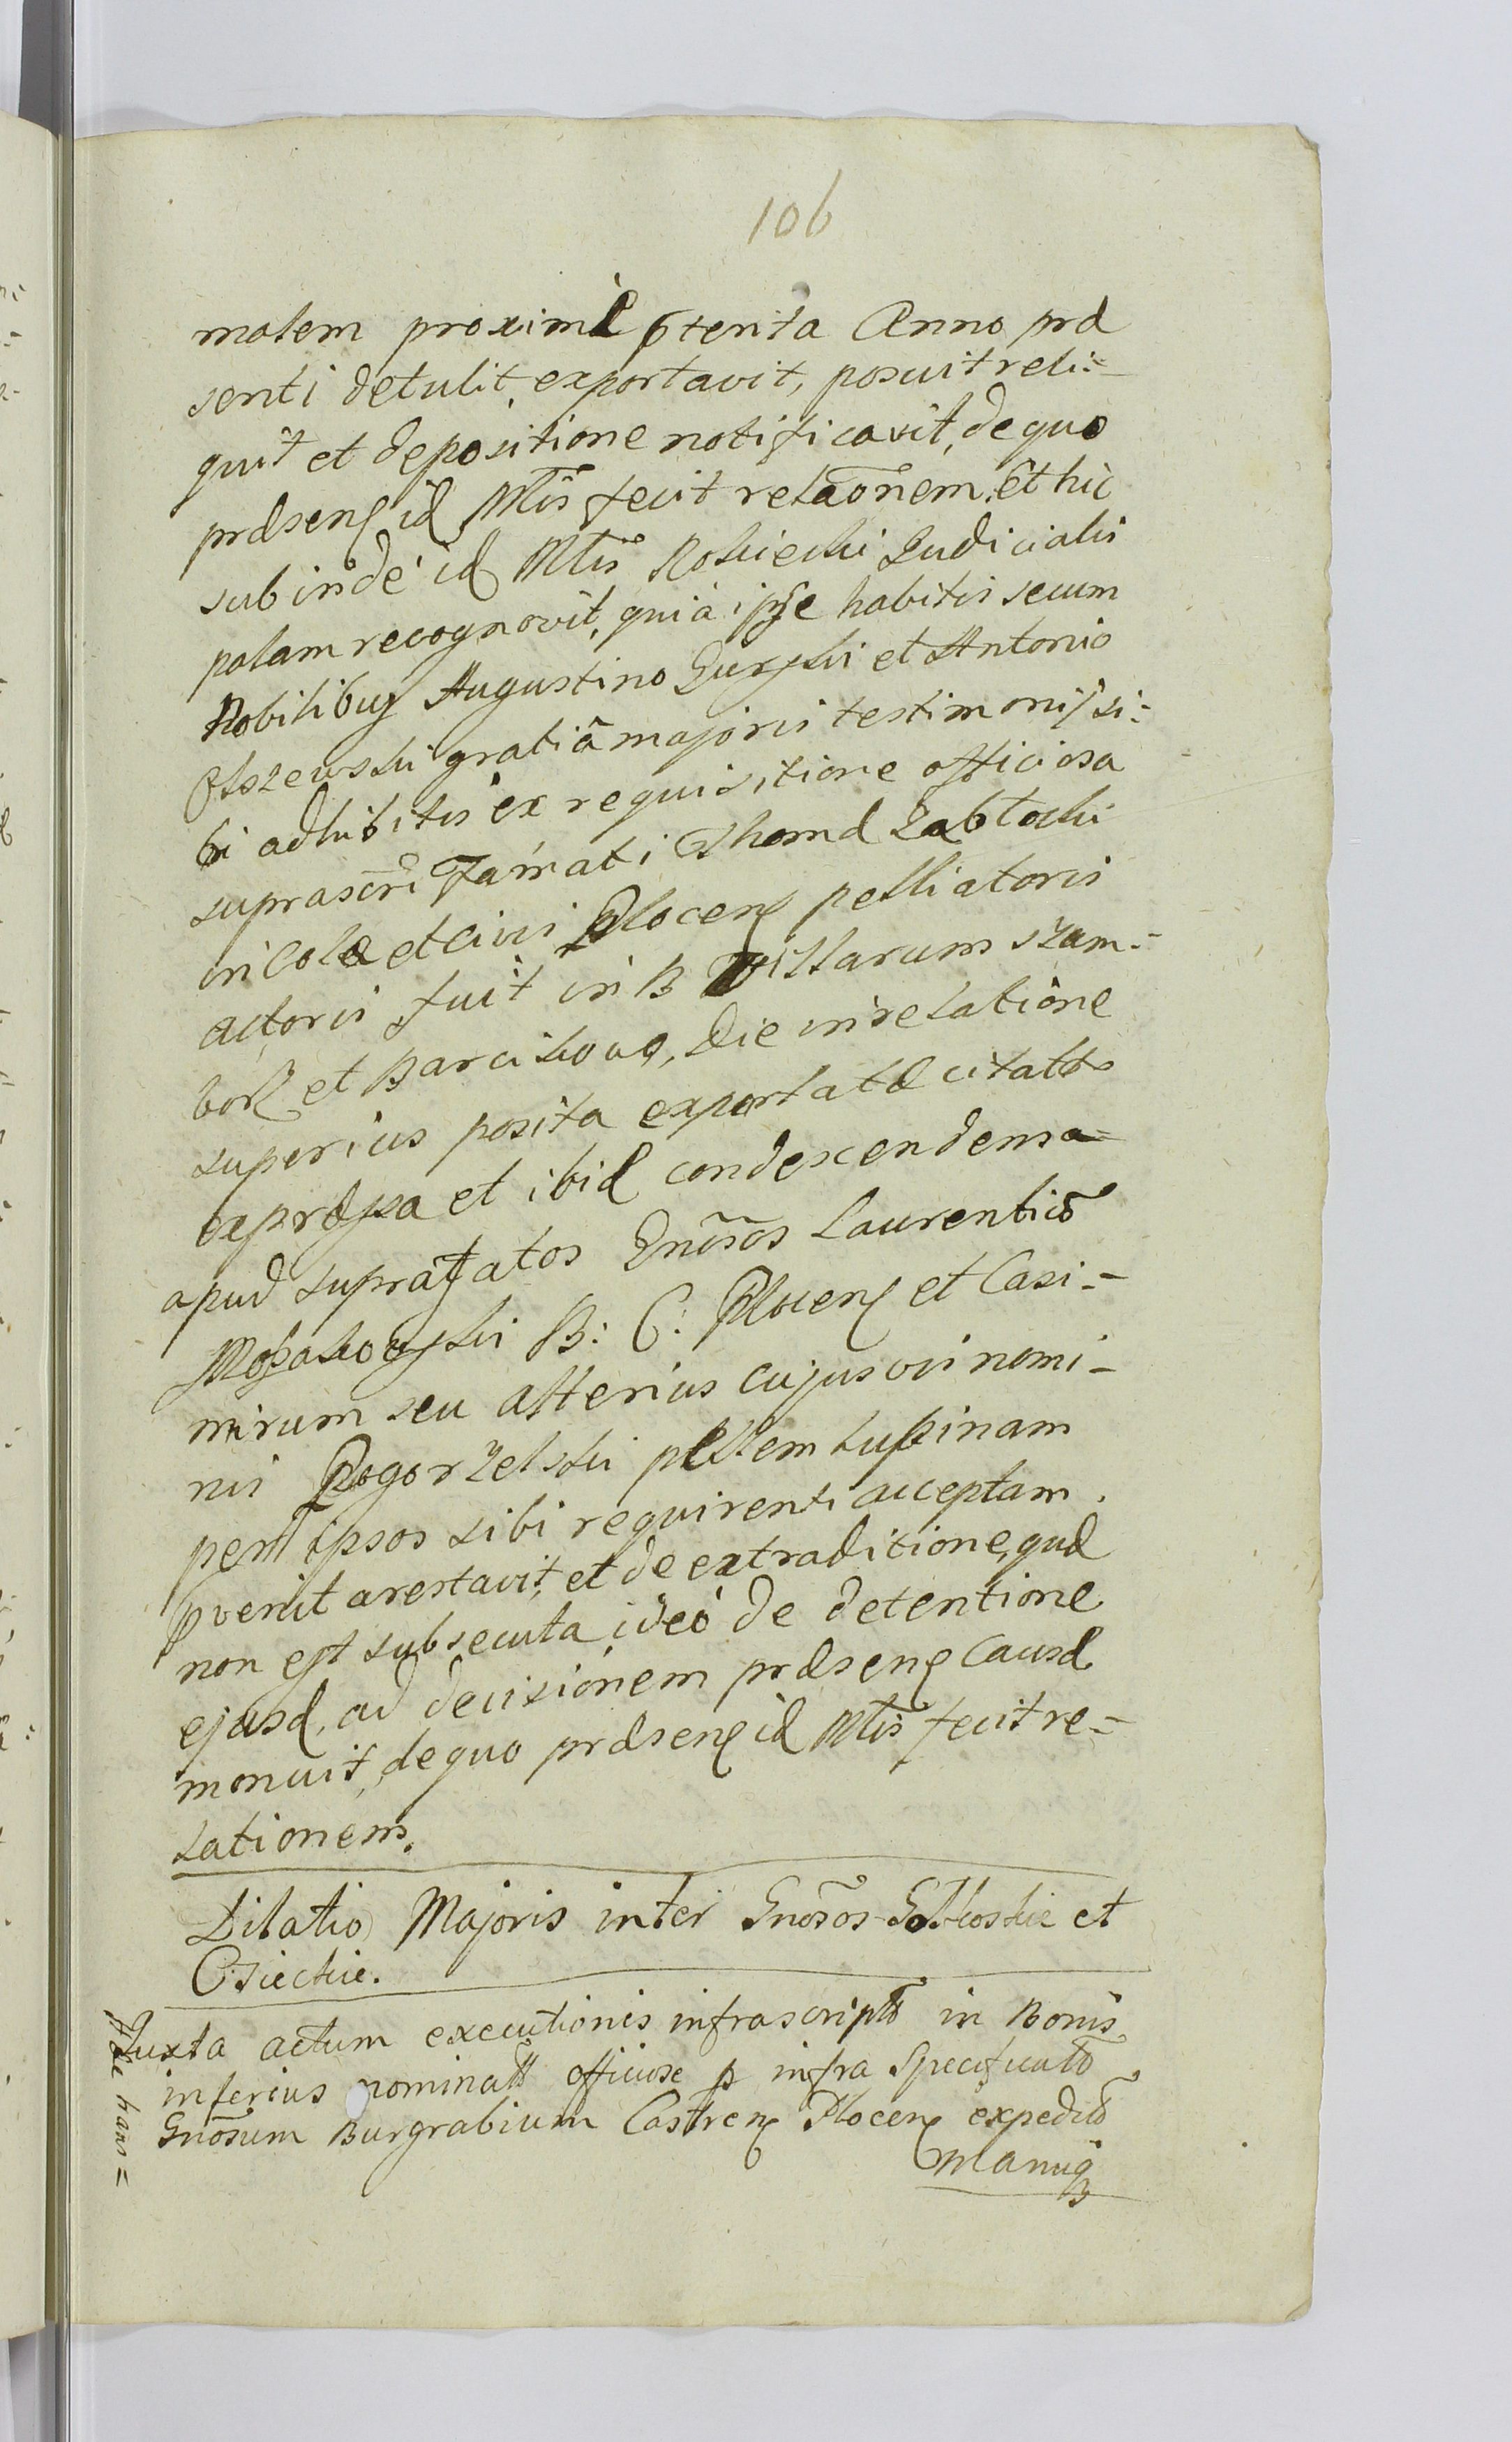 106
matem proximè pterita Anno præ
senti detulit, exportavit, posuit reli=
quit et de positione notificavit, de quo
præsens id Mtis fecit relaōnem. Et hic
subinde id Mtis Rościecki Judicialis
palam recognovit, quia ipse habitis secum
Nobilibus Augustino Gurski et Antonio
Olszewski gratiā majoris testimonij si=
bi adhibitis ex requisitione officiosa
suprascri Famati Thomæ Zabłocki
incolæ et civis Plocens pelliatoris
actoris fuit in B Villarum szam=
borz et Barcikowo, die in relatione
superius posita exportatæ citatts
expressa et ibid condescendem a=
apud suprafatos Gnosos Laurentiū
Mokakowski B: C: Plocens et Casi=
mirum seu alterius cujusvis nomi=
nis Pogorzelski pellem lupinam
pem ipsos sibi requirenti acceptam
pvenit arestavit, et de extraditione, quæ
non est subsecuta, ideo de detentione
ejusd, ad decisionem præsens Causæ
monuit, de quo præsens id Mtis fecit re=
lationem.
Dilatio Majoris inter Gnosos et
Osieckie.
Juxta actum executionis infrascripti in Bonis
inferius nominatt officiose p infra Specificatū
Gnōsum Burgrabium Castren Plocen expeditū
Manuq
hans=